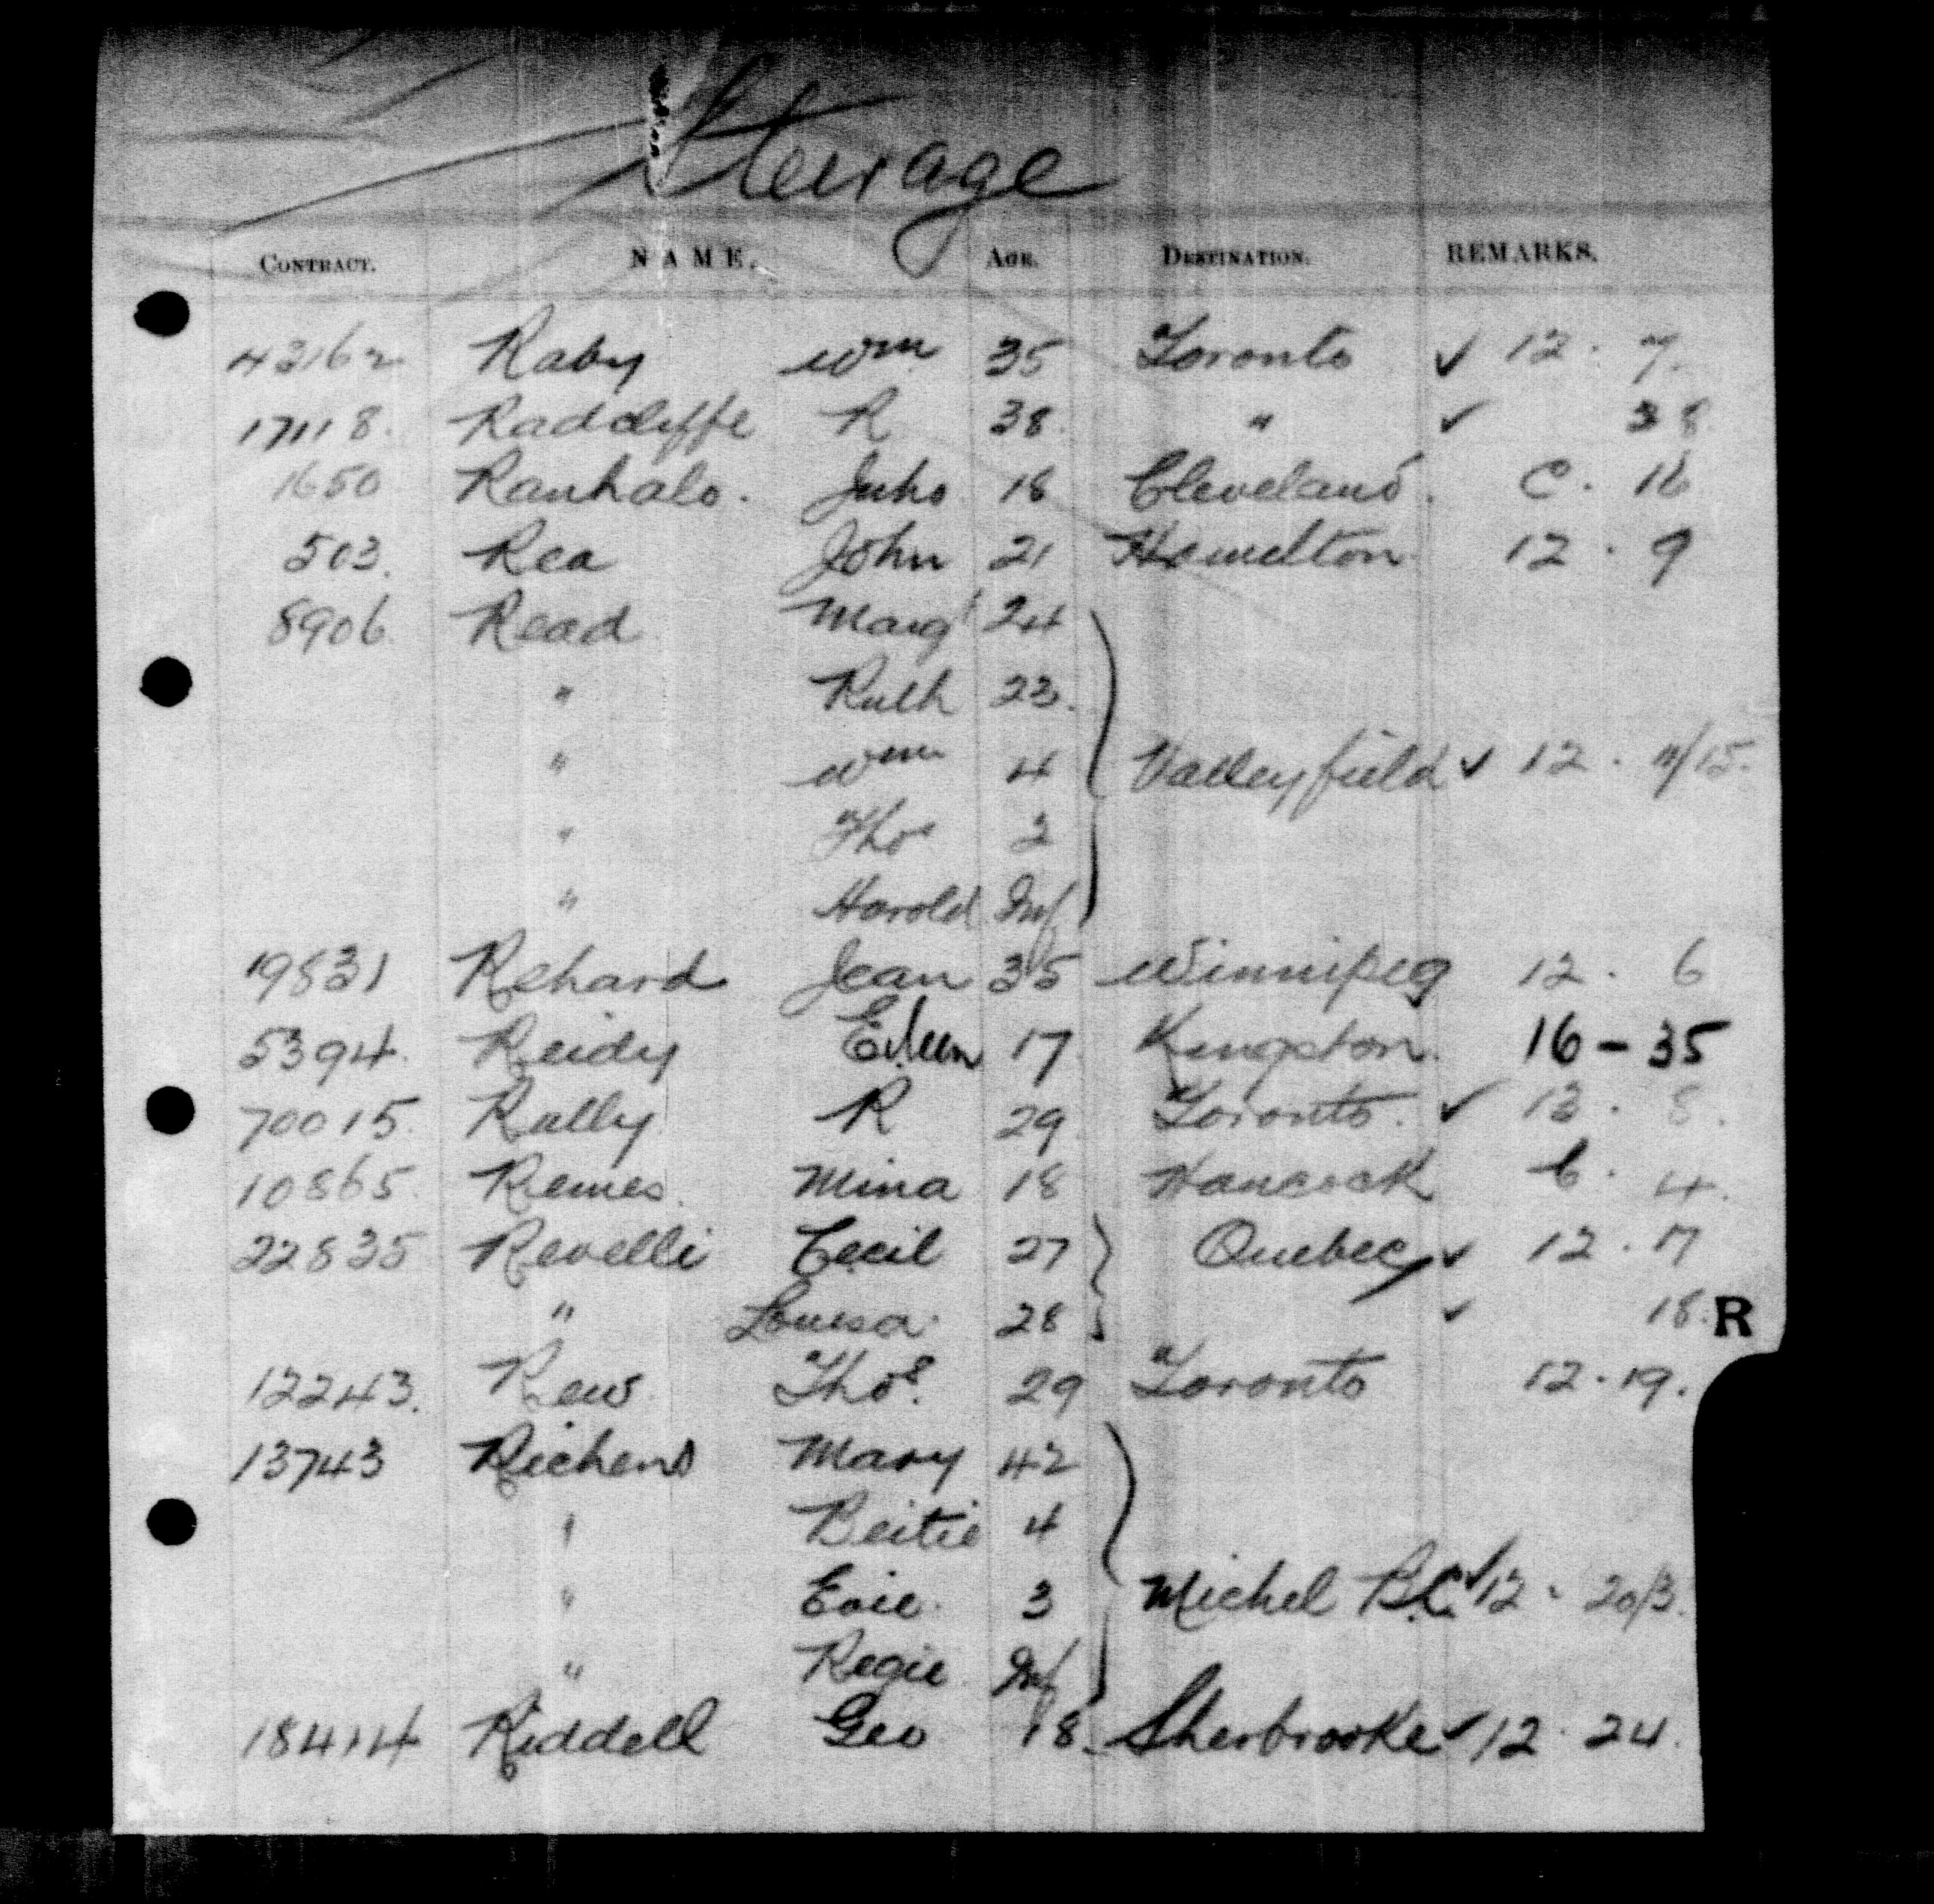 Steerage
CONTRACT. NAME. AGE. DESTINATION. REMARKS.
43162 Raby Wm 35 Toronto ✓ 12 . 7.
17118. Radcliffe R 38. " ✓ 38
1650 Ranhalo. Juho 18 Cleveland. C. 16
503. Rea John 21 Hamilton 12 . 9
8906. Read Margt 24
" Ruth 23.
" Wm 4 Valleyfield ✓ 12 . 11/15.
" Thos 2
" Harold Inf
19831 Rehard Jean 35 Winnipeg 12 . 6
5394. Reidy Eileen 17 Kingston. 16 - 35
70015. Relly R 29 Toronto. ✓ 12 . 8.
10865. Remes. Mina 18 Hancock C . 4.
22835 Revelli Cecil 27 Quebec ✓ 12 . 17
" Louisa. 28 ✓ 18. R
12243. Rew Thos. 29 Toronto 12 . 19.
13743 Richens Mary 42
" Beitie 4
" Evie. 3 Michel B.C. ✓ 12 . 20/3.
" Regie Inf
18414 Riddell Geo 18. Sherbrooke ✓ 12 . 24.